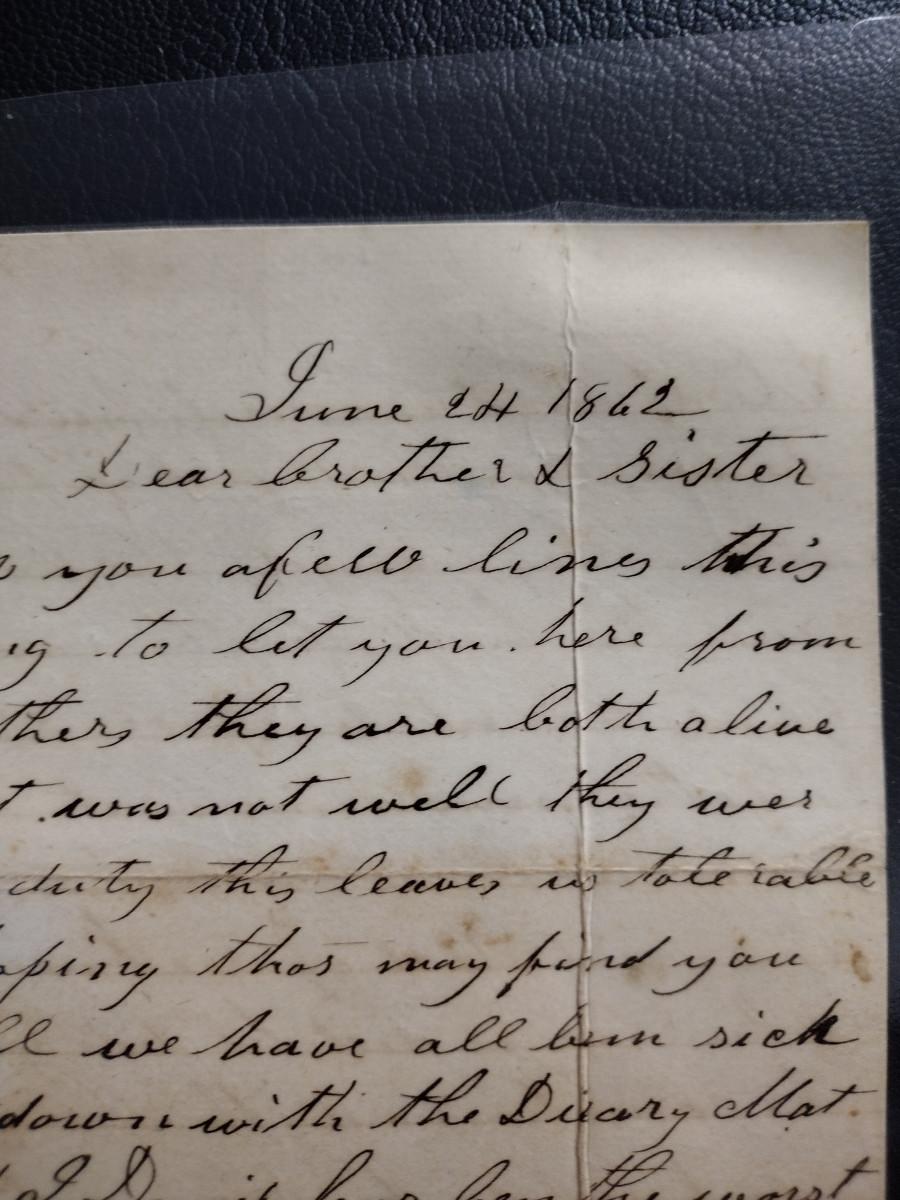 June 24 1862
Dear brother & Sister
you afeiw lines this
to let you here from
thers they are both alive
was not well they wer
duty this leaves us tolerable
oping thos may find you
we have all ben sick
down with the Diary Mat
it has ben the worst